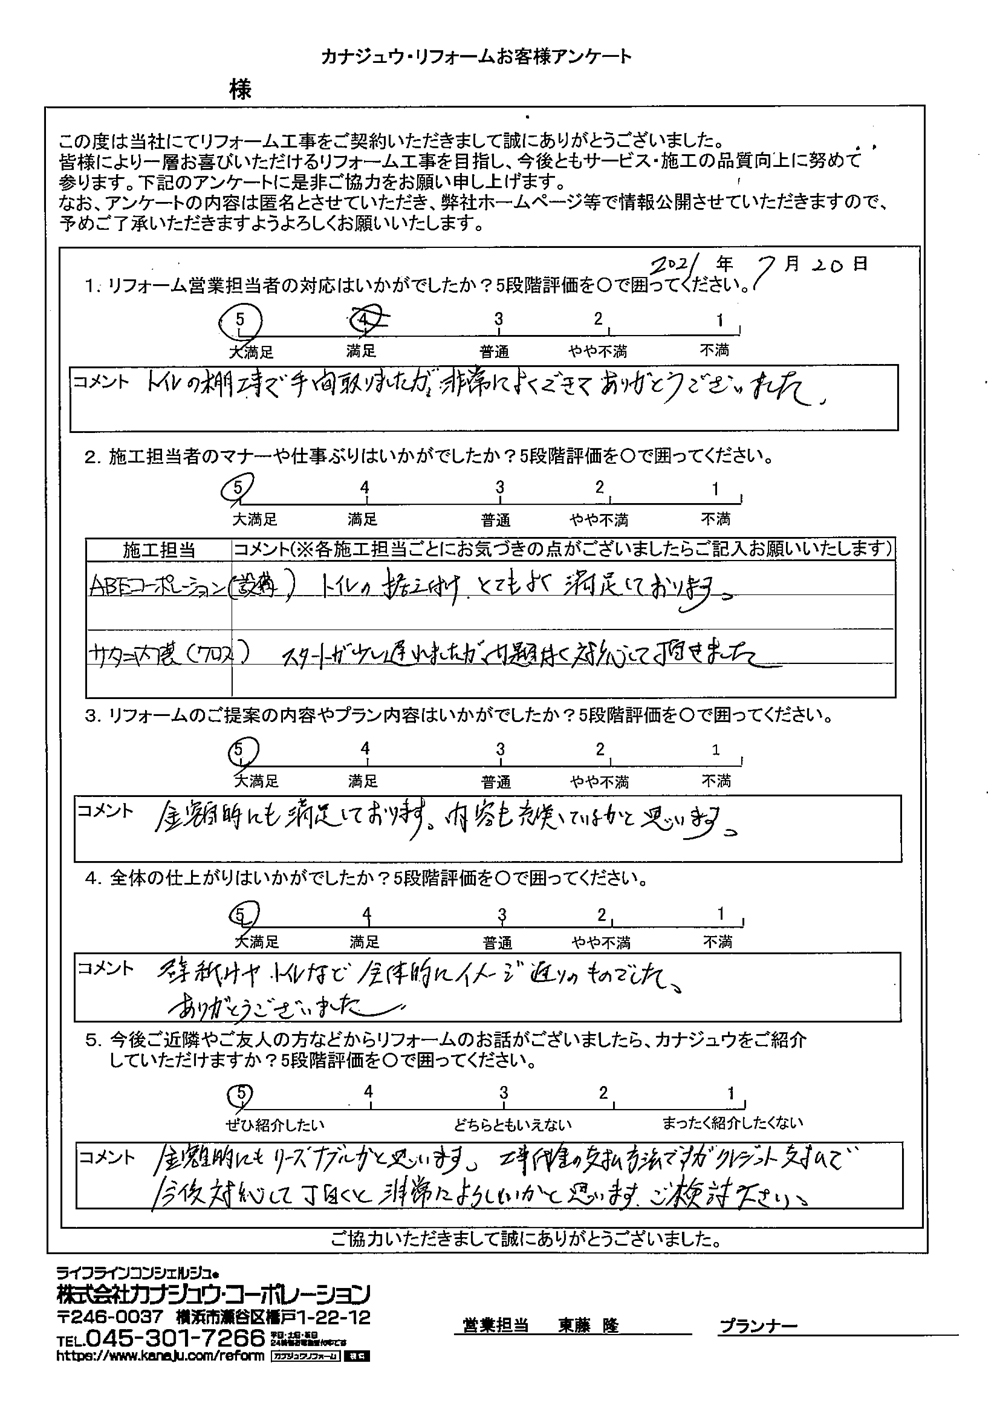 カナジュウ・リフォームお客様アンケート
様
この度は当社にてリフォーム工事をご契約いただきまして誠にありがとうございました。
皆様により一層お喜びいただけるリフォーム工事を目指し、今後ともサービス・施工の品質向上に努めて
参ります。下記のアンケートに是非ご協力をお願い申し上げます。
なお、アンケートの内容は匿名とさせていただき、弊社ホームページ等で情報公開させていただきますので、
予めご了承いただきますようよろしくお願いいたします。
2021年 7月20日
1. リフォーム営業担当者の対応はいかがでしたか？5段階評価を〇で囲ってください。
5 4 3 2 1
大満足 満足 普通 やや不満 不満
コメント トイレの棚工事で手間取りましたが、非常によくできてありがとうございました、
2. 施工担当者のマナーや仕事ぶりはいかがでしたか？5段階評価を〇で囲ってください。
5 4 3 2 1
大満足 満足 普通 やや不満 不満
施工担当 コメント(※各施工担当ごとにお気づきの点がございましたらご記入お願いいたします)
ABEコーポレーション(設備) トイレの据え付け とてもよく 満足しております。
サタニ内装(クロス) スタートが少し遅れましたが 問題なく対応して頂きました
3. リフォームのご提案の内容やプラン内容はいかがでしたか？5段階評価を〇で囲ってください。
5 4 3 2 1
大満足 満足 普通 やや不満 不満
コメント 金額的にも満足しております。内容も充実しているかと思います。
4. 全体の仕上がりはいかがでしたか？5段階評価を〇で囲ってください。
5 4 3 2 1
大満足 満足 普通 やや不満 不満
コメント 壁紙やトイレなど全体的にイメージ通りのものでした、
ありがとうございました
5. 今後ご近隣やご友人の方などからリフォームのお話がございましたら、カナジュウをご紹介
していただけますか？5段階評価を〇で囲ってください。
5 4 3 2 1
ぜひ紹介したい どちらともいえない まったく紹介したくない
コメント 金額的にもリーズナブルかと思います。工事代金の支払方法ですがクレジット支払で
今後対応して頂くと非常によろしいかと思います、ご検討下さい、
ご協力いただきまして誠にありがとうございました。
ライフラインコンシェルジュ®
株式会社カナジュウ・コーポレーション
〒246-0037 横浜市瀬谷区橋戸1-22-12
TEL.045-301-7266
https://www.kanaju.com/reform カナジュウリフォーム 検索
営業担当 東藤 隆
プランナー